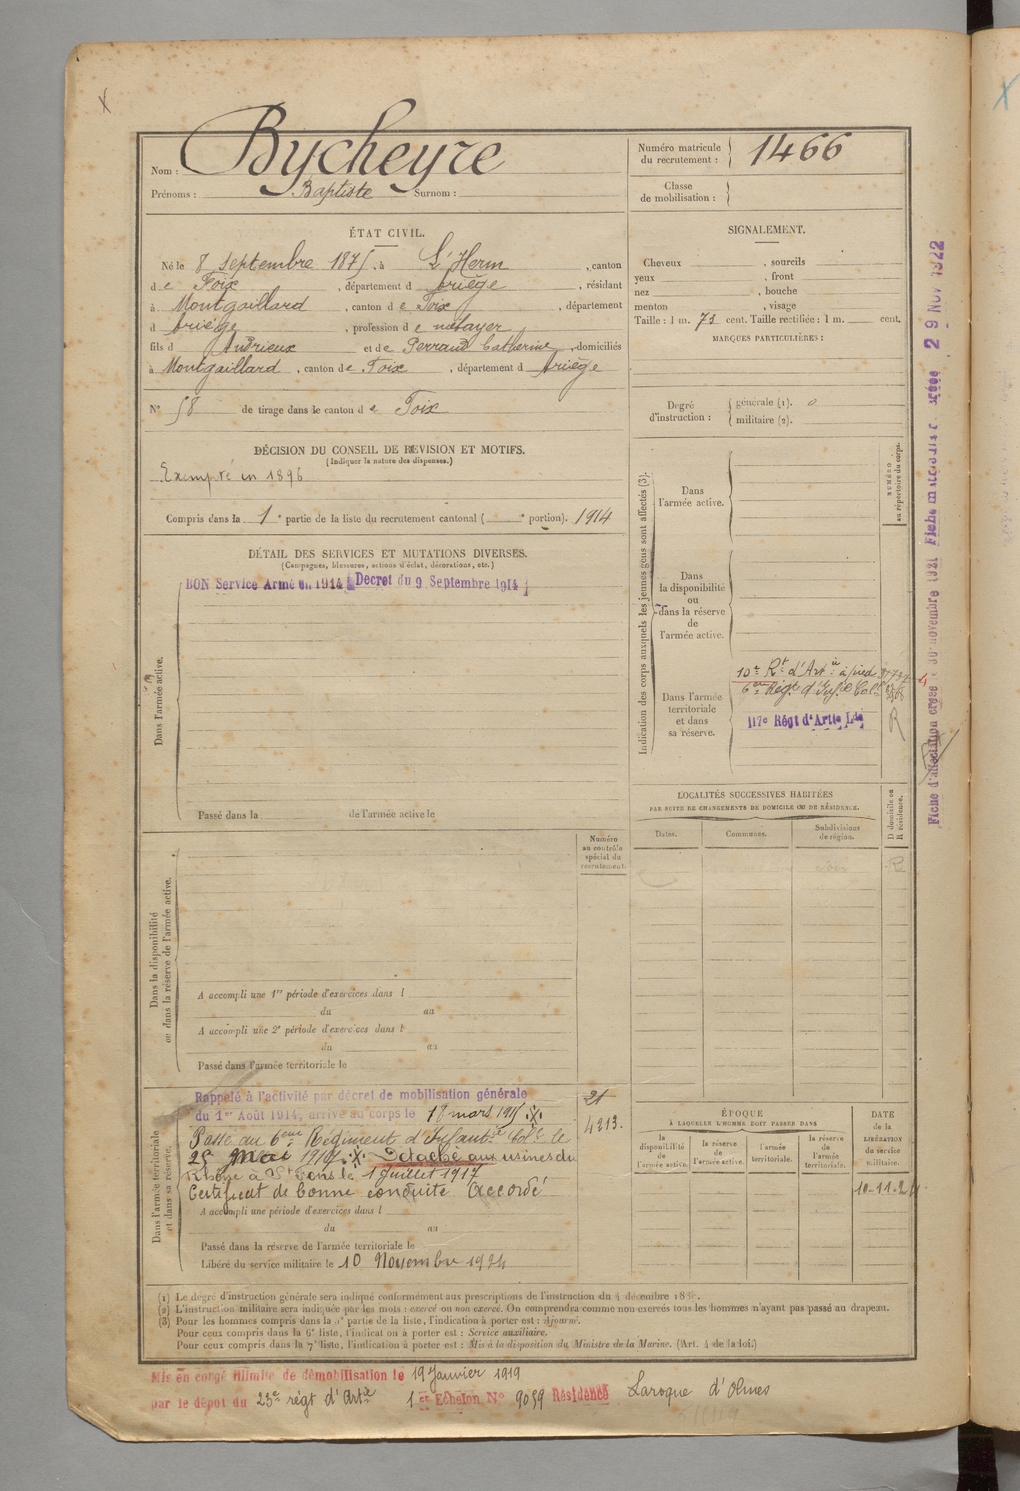 Nom : Bycheyre
Prénoms : Baptiste Surnom :
Numéro matricule
du recrutement : 1466
Classe
de mobilisation :
ÉTAT CIVIL.
Né le 8 septembre 1875, à L'Herm, canton
de Foix, département d'Ariège, résidant
à Montgaillard, canton de Foix, département
d'Ariège, profession de métayer
fils d'Andrieux et de Perraud Catherine, domiciliés
à Montgaillard, canton de Foix, département d'Ariège
N° 58 de tirage dans le canton de Foix
SIGNALEMENT.
Cheveux , sourcils
yeux , front
nez , bouche
menton , visage
Taille : 1 m. 73 cent. Taille rectifiée : 1 m. cent.
MARQUES PARTICULIÈRES :
Degré
d'instruction :
générale (1). 0
militaire (2).
DÉCISION DU CONSEIL DE REVISION ET MOTIFS.
(Indiquer la nature des dispenses.)
Exempté en 1896
Compris dans la 1e partie de la liste du recrutement cantonal ( e portion). 1914
DÉTAIL DES SERVICES ET MUTATIONS DIVERSES.
(Campagnes, blessures, actions d'éclat, décorations, etc.)
BON Service Armé en 1914 (Decret du 9 Septembre 1914)
Dans l'armée active.
Passé dans la de l'armée active le
Indication des corps auxquels les jeunes gens sont affectés (3).
NUMÉRO
au répertoire du corps.
Dans
l'armée active.
Dans
la disponibilité
ou
dans la réserve
de
l'armée active.
Dans l'armée
territoriale
et dans
sa réserve.
10e Rt d'Artie à pied
6me Régt d'Infie Colle
117e Régt d'Artie Lde
R
LOCALITÉS SUCCESSIVES HABITÉES
PAR SUITE DE CHANGEMENTS DE DOMICILE OU DE RÉSIDENCE.
Dates.
Communes.
Subdivisions
de région.
D domicile ou
R résidence.
R
Numéro
au contrôle
spécial du
recrutement.
Dans la disponibilité
ou dans la réserve de l'armée active.
A accompli une 1re période d'exercices dans l
du au
A accompli une 2e période d'exercices dans l
du au
Passé dans l'armée territoriale le
Dans l'armée territoriale
et dans sa réserve.
Rappelé à l'activité par décret de mobilisation générale
du 1er Août 1914, arrivé au corps le 18 mars 1915
Passé au 6eme Régiment d'Infantie Colle le
25 Mai 1917 Détaché aux usines du
Rhône à St Fons le 1 juillet 1917
Certificat de bonne conduite Accordé
21
4213.
A accompli une période d'exercices dans l
du au
Passé dans la réserve de l'armée territoriale le
Libéré du service militaire le 10 Novembre 1924
ÉPOQUE
À LAQUELLE L'HOMME DOIT PASSER DANS
la
disponibilité
de
l'armée active.
la réserve
de
l'armée active.
l'armée
territoriale.
la réserve
de
l'armée
territoriale.
DATE
de la
LIBÉRATION
du service
militaire.
10-11-24
(1) Le degré d'instruction générale sera indiqué conformément aux prescriptions de l'instruction du 4 décembre
(2) L'instruction militaire sera indiquée par les mots : exercé ou non exercé. On comprendra comme non exercés tous les hommes n'ayant pas passé au drapeau.
(3) Pour les hommes compris dans la partie de la liste, l'indication à porter est : Ajourné.
Pour ceux compris dans la 6e liste, l'indication à porter est : Service auxiliaire.
Pour ceux compris dans la 7e liste, l'indication à porter est : Mis à la disposition du Ministre de la Marine. (Art. 4 de la loi.)
Mis en congé illimité de démobilisation le 19 Janvier 1919
par le dépôt du 23e régt d'Artie 1er Echelon N° 9059 Résidence Laroque d'Olmes
Fiche d'affectation créée 30 novembre 1921 Fiche matriculaire créée 29 Nov 1922